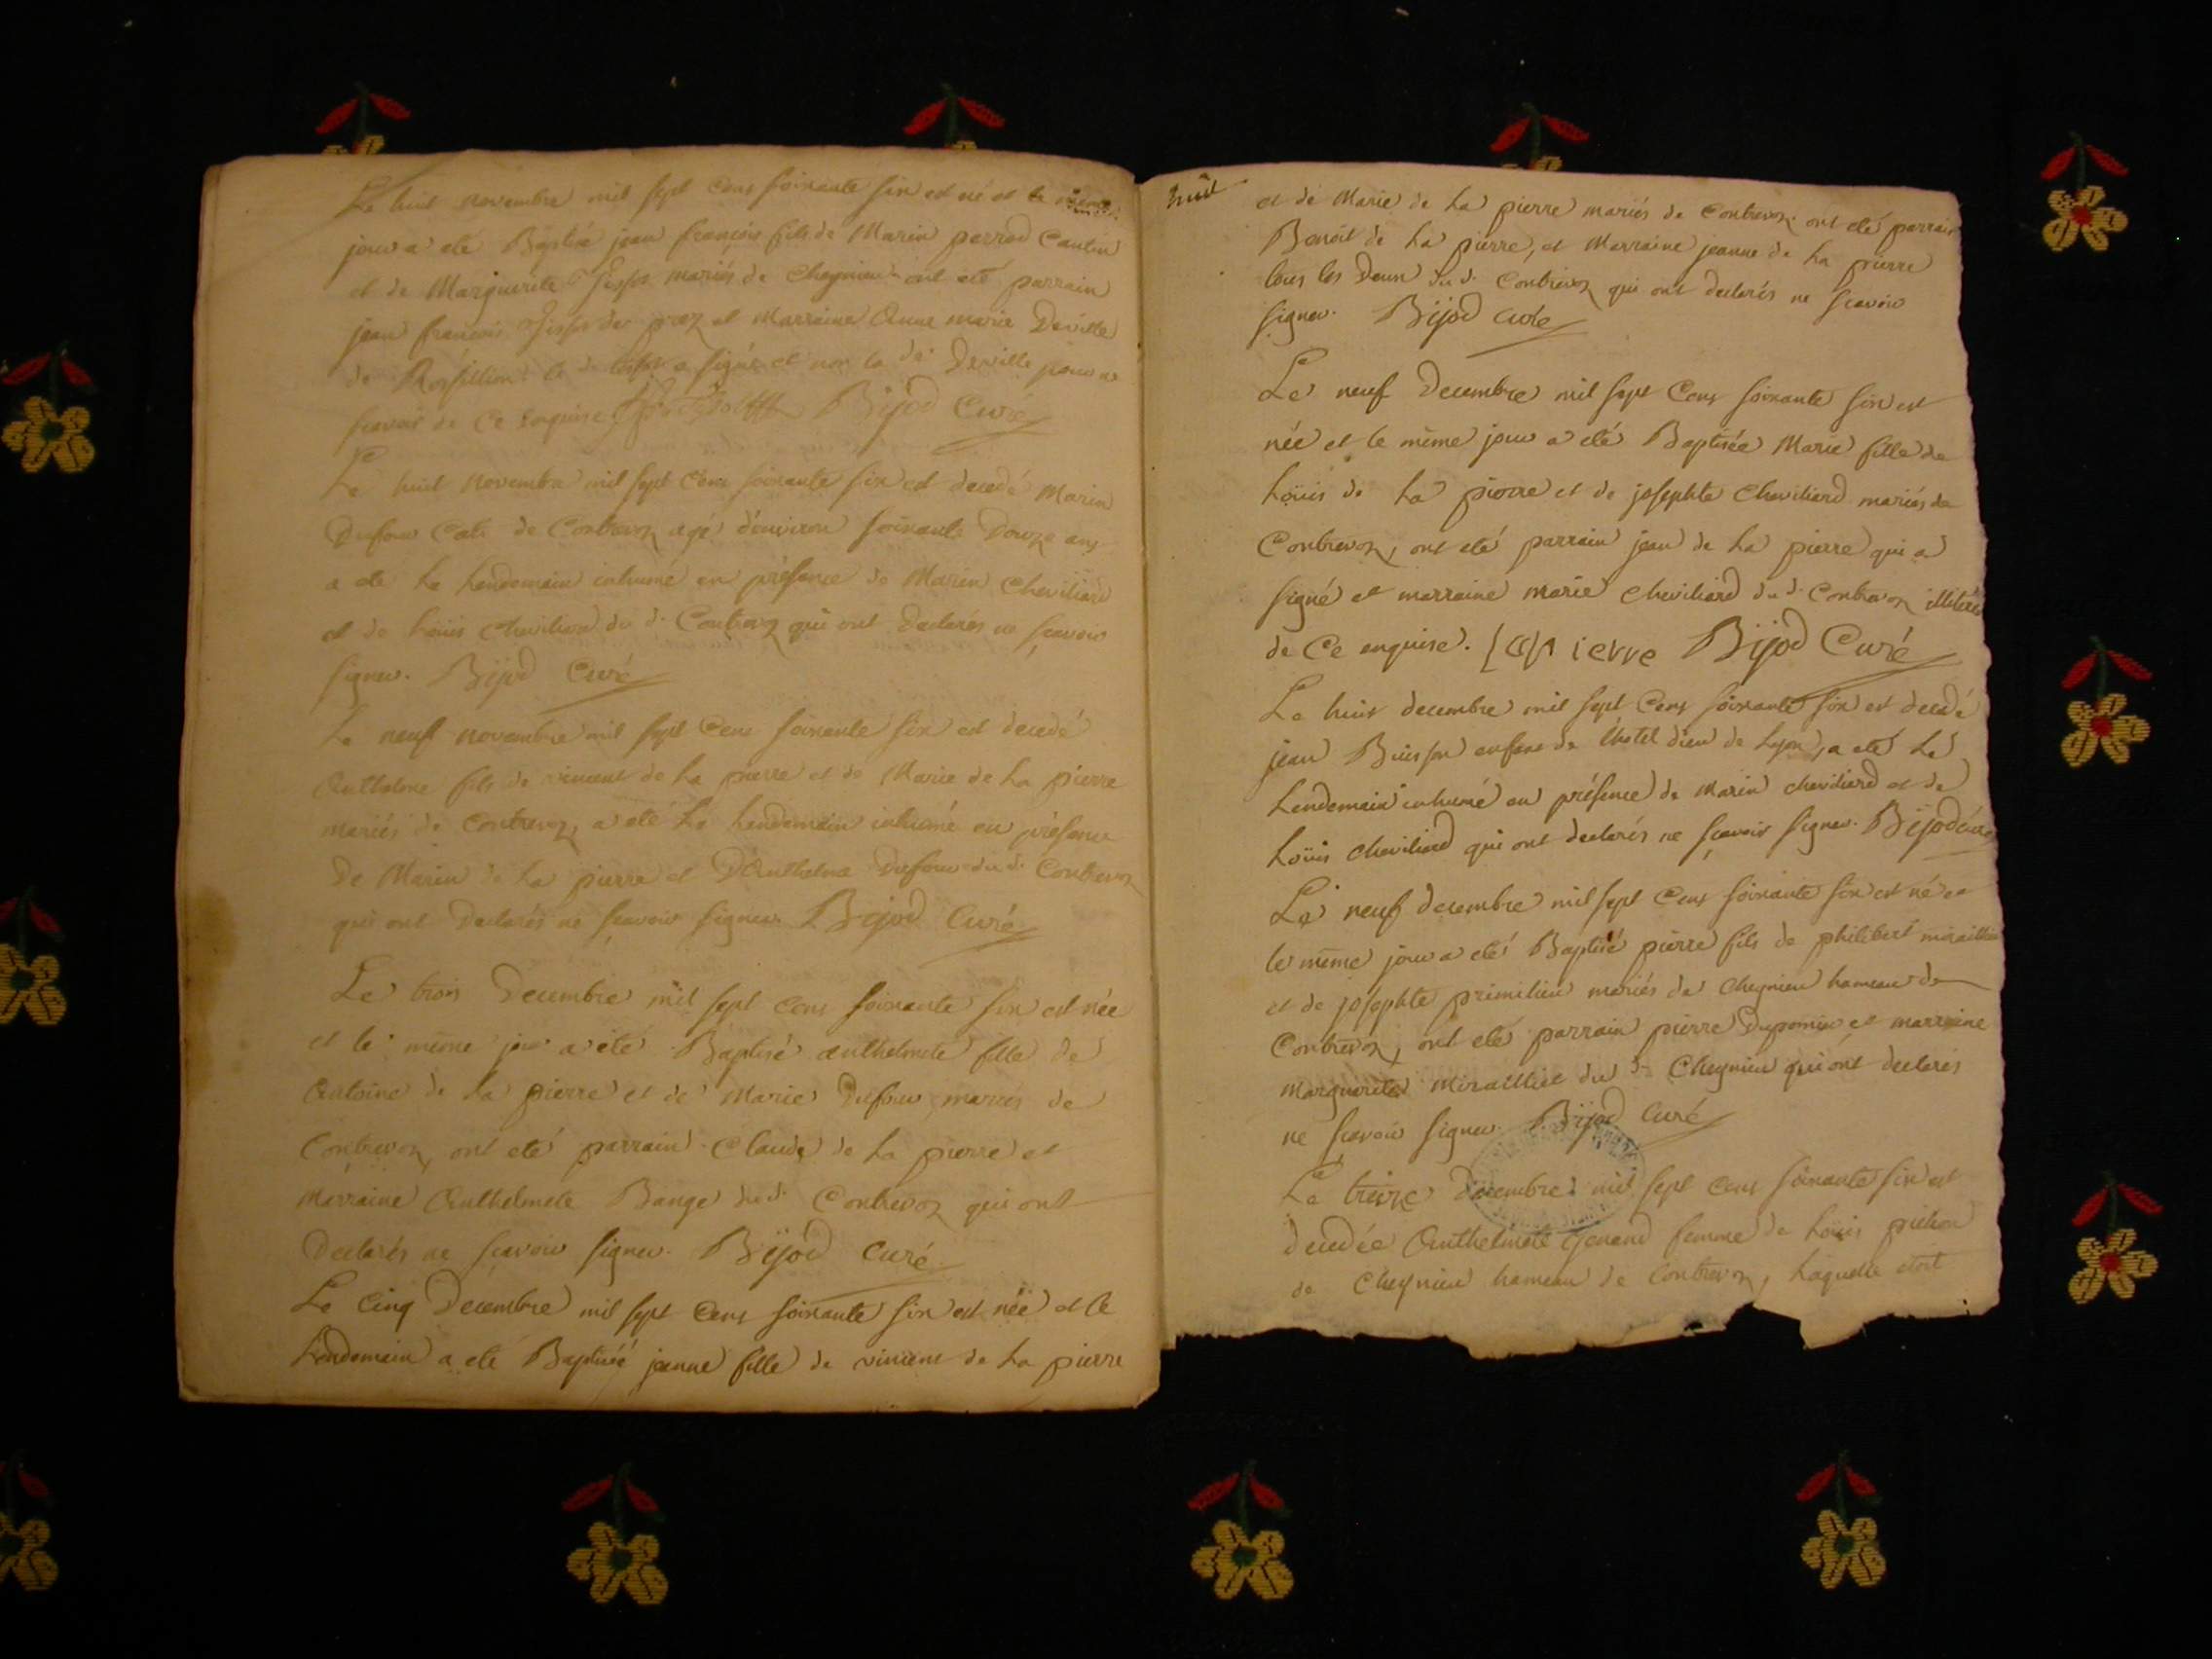 Le huit novembre mil sept cens soixante six est né et le même
jour a eté Baptisé jean françois fils de Marin perrod Cantin
et de Marguerite mariés de Cheynieu ont eté parrain
jean françois et Marraine Anne marie Deville
de Rossillion le d. a signé et non la de. Deville pour ne
scavoir de Ce enquise Bijod Curé
Le huit novembre mil sept Cens soixante six est decedé Marin
Dufour de Contrevoz agé d'environ soixante Douze ans
a eté Le Lendemain inhumé en présence de Marin Cheviliard
et de Loüis Cheviliard du d. Contrevoz qui ont Declarés ne scavoir
signer. Bijod Curé
Le neuf novembre mil sept Cens soixante six est decedé
Anthelme fils de vincent de La pierre et de Marie de La pierre
mariés de Contrevoz, a eté Le Lendemain inhumé en présence
De Marin de La pierre et D'Anthelme Dufour du d. Contrevoz
qui ont Declarés ne scavoir signer. Bijod Curé
Le trois Decembre mil sept cens soixante six est née
et le même jour a eté Baptisé anthelmete fille de
Antoine de La pierre et de Marie Dufour mariés de
Contrevoz, ont eté parrain Claude de La pierre et
Marraine Anthelmete Bange du d. Contrevoz qui ont
Declarés ne scavoir signer. Bijod Curé.
Le Cinq Decembre mil sept Cens soixante six est née et le
Lendemain a eté Baptisée jeanne fille de vincent de La pierre
huit
et de Marie de La pierre mariés de Contrevoz. ont eté parrain
Benoit de La pierre, et Marraine jeanne de La pierre
tous les Deux du d. Contrevoz qui ont declarés ne scavoir
signer. Bijod Curé
Le neuf Decembre mil sept Cens soixante six est
née et le même jour a eté Baptisée Marie fille de
Loüis de La pierre et de josephte Cheviliard mariés de
Contrevoz, ont eté parrain jean de La pierre qui a
signé et marraine marie Cheviliard du d. Contrevoz illiterée
de Ce enquise. lapierre Bijod Curé
Le huit decembre mil sept Cens soixante six est decedé
jean Buisson enfant de l'hotel dieu de Lyon, a eté Le
Lendemain inhumé en présence de Marin cheviliard et de
Loüis Cheviliard qui ont declarés ne scavoir signer. Bijod Curé
Le neuf decembre mil sept Cens soixante six est né et
le même jour a eté Baptisé pierre fils de philibert miraillier
et de josephte primilieu mariés de Cheynieu hameau de
Contrevoz, ont eté parrain pierre Duponin et marraine
Marguerite Miraillier du d. Cheynieu qui ont declarés
ne scavoir signer. Bijod Curé
Le treize Decembre mil sept Cens soixante six est
decedée Anthelmete Genand femme de Loüis pichon
de Cheynieu hameau de Contrevoz, Laquelle etoit